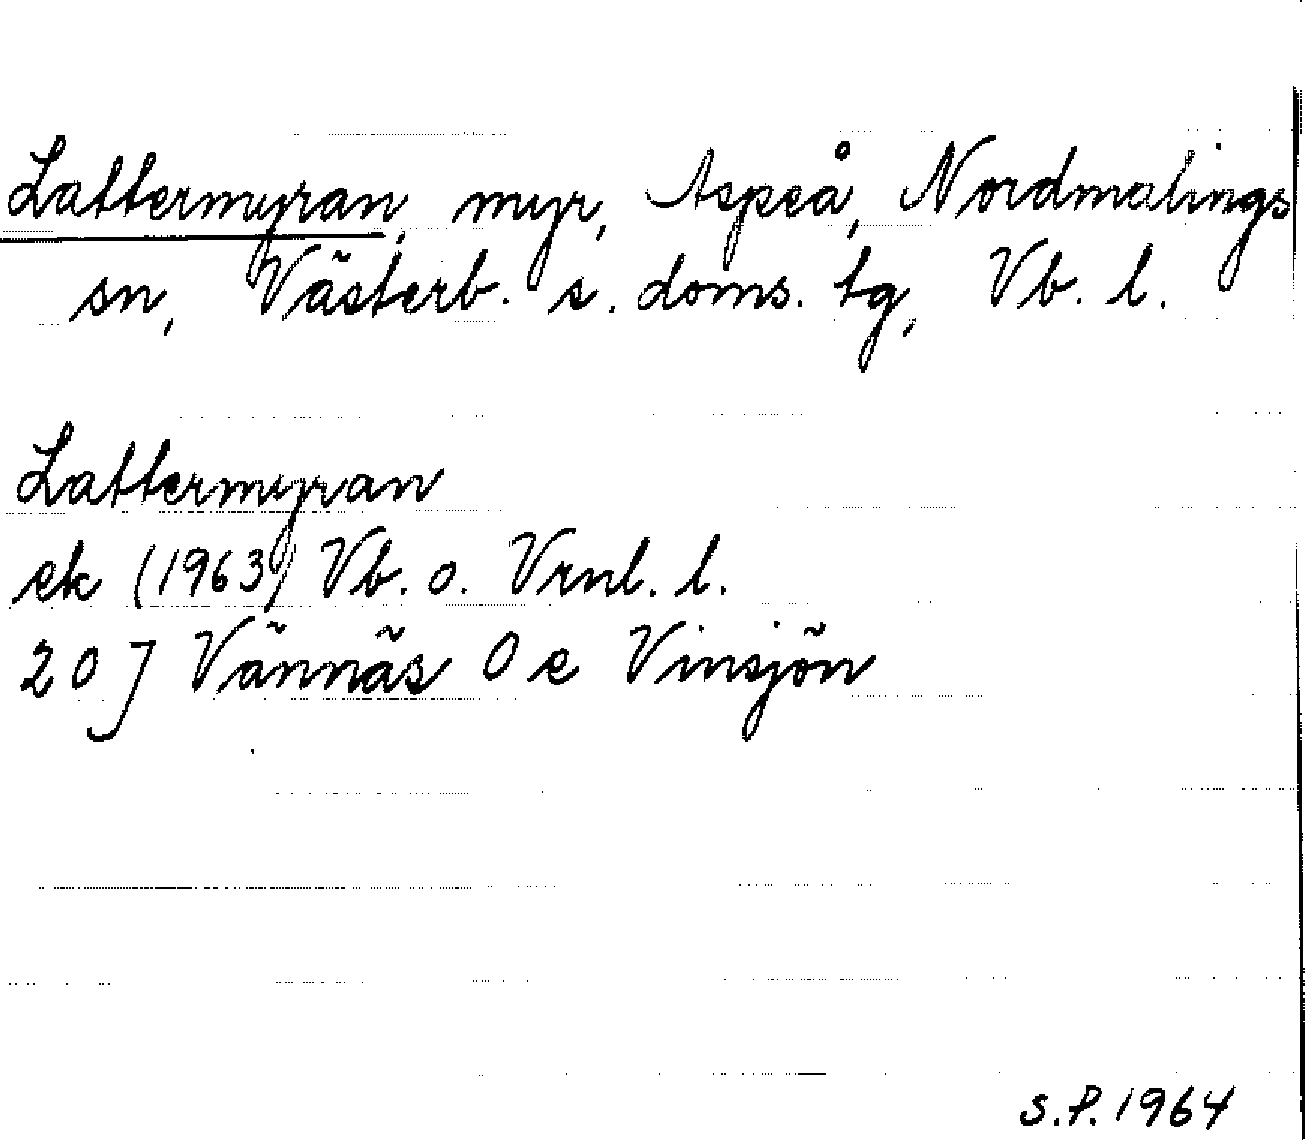 Lattermyran, myr, Aspeå, Nordmalings
sn, Västerb. s. doms. tg, Vb. l.
Lattermyran
ek (1963) Vb. o. Vrnl. l.
20 J Vännäs 0 e Vinsjön
S.P. 1964